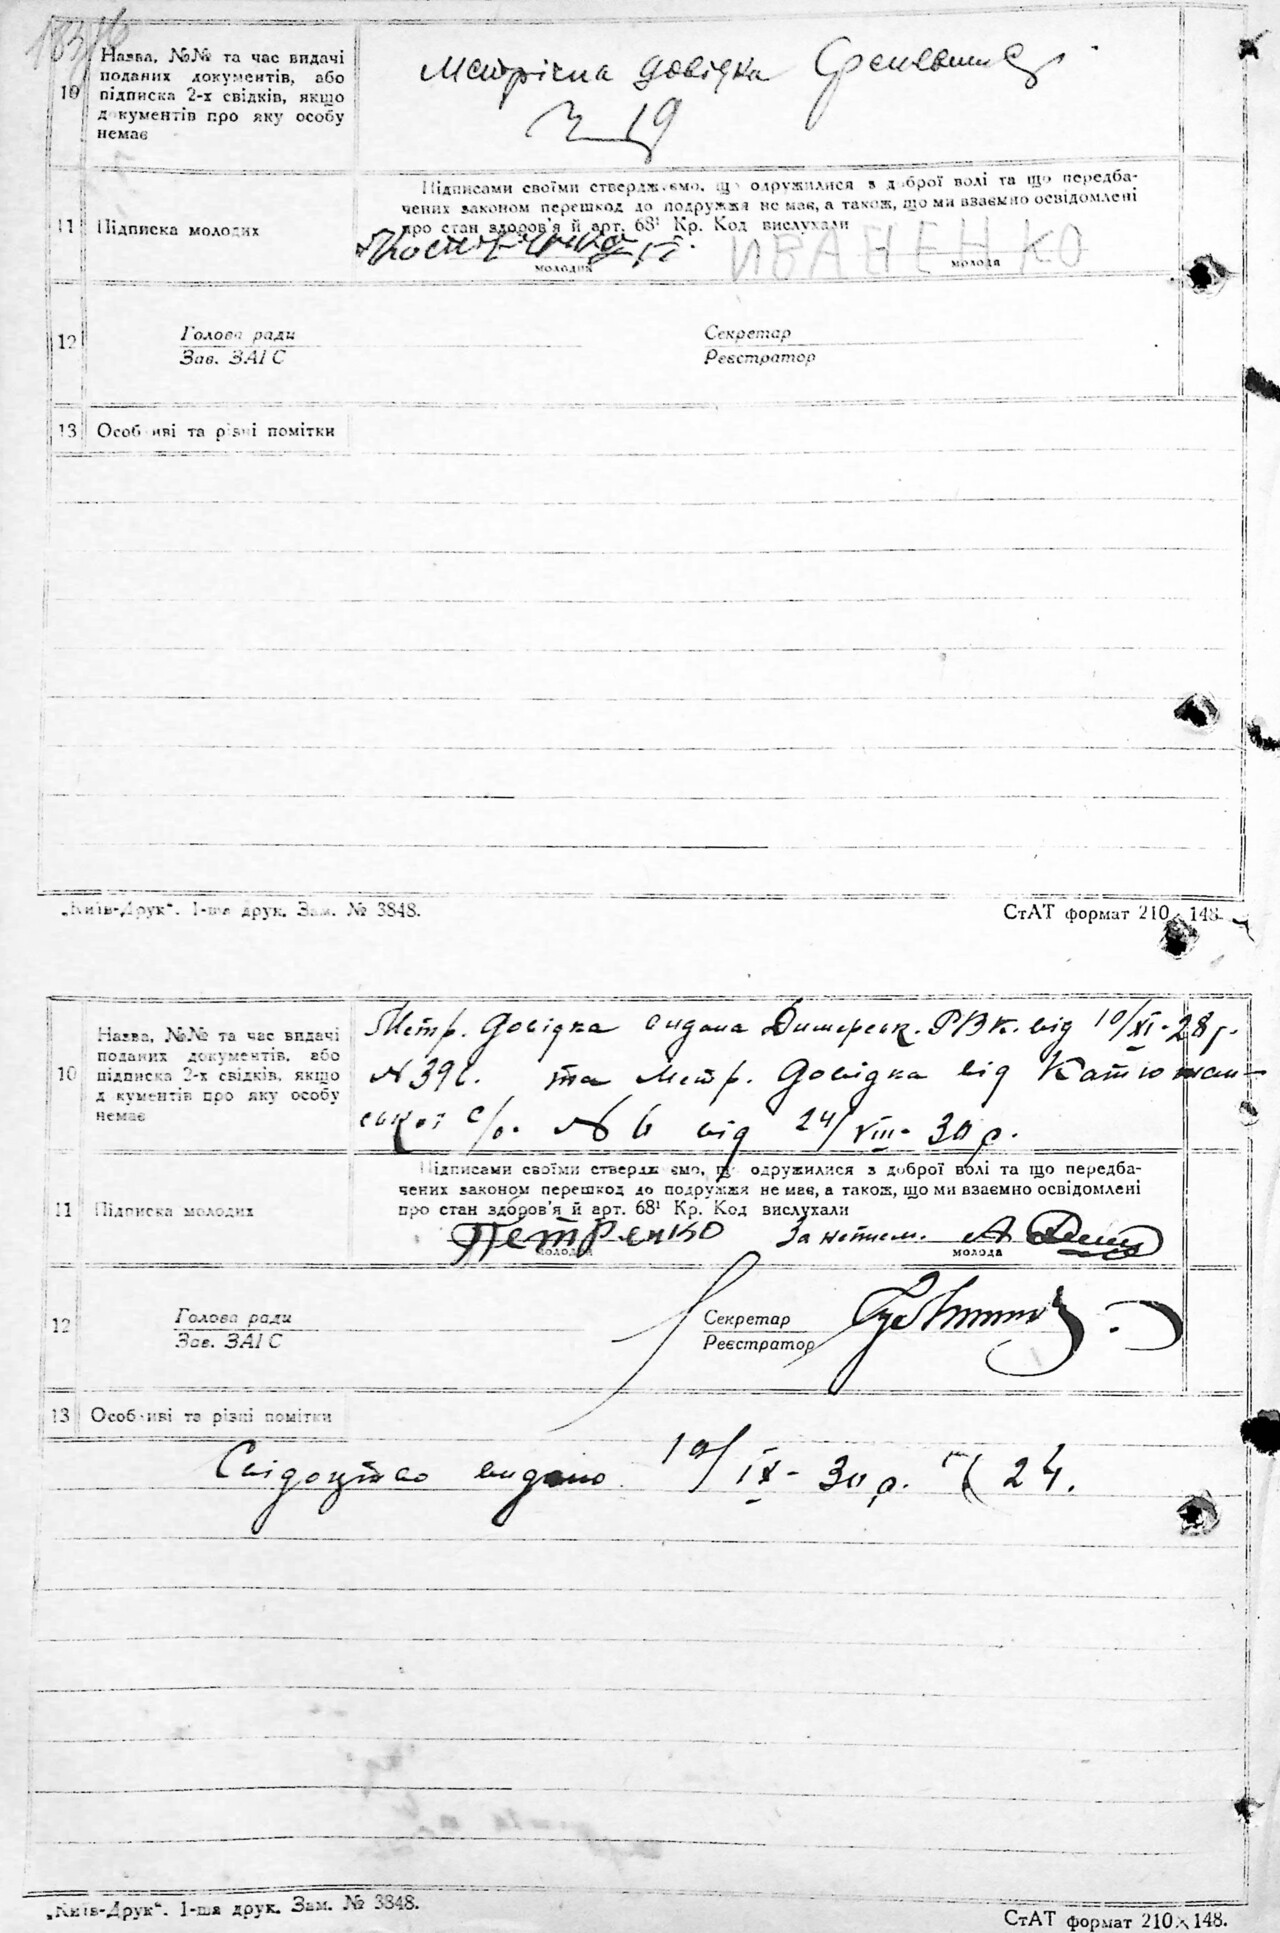 183
Назва, №№ та час видачі
поданих документів, або
10 підписка 2-х свідків, якщо
документів про яку особу
немає
Метрічна довідка
19
Підписами своїми стверджуємо, що одружилися з доброї волі та що передба-
чених законом перешкод до подружжя не має, а також, що ми взаємно освідомлені
про стан здоров'я й арт. 68¹ Кр. Код вислухали
11 Підписка молодих
ИВАНЕНКО
молодий молода
12 Голова ради Секретар
Зав. ЗАГС Реєстратор
13 Особливі та різні помітки
„Київ-Друк“. 1-ша друк. Зам. № 3848. СтАТ формат 210×148.
Назва, №№ та час видачі
поданих документів, або
10 підписка 2-х свідків, якщо
документів про яку особу
немає
Метр. Довідка видана Димерськ. РВК. від 10/XI-28 р.
та Метр. Довідка від Катюжан-
ської с/р. № 6 від 24/VIII-30 р.
Підписами своїми стверджуємо, що одружилися з доброї волі та що передба-
чених законом перешкод до подружжя не має, а також, що ми взаємно освідомлені
про стан здоров'я й арт. 68¹ Кр. Код вислухали
11 Підписка молодих
Петренко За неписм.
молодий молода
12 Голова ради Секретар
Зав. ЗАГС Реєстратор
13 Особливі та різні помітки
Свідоцтво видано 10/IX-30 р. № 24.
„Київ-Друк“. 1-ша друк. Зам. № 3848.
СтАТ формат 210×148.